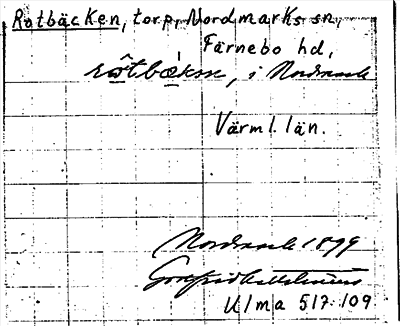 Rotbäcken, torp, Nordmarks sn,
Färnebo hd,
i Nordmark
Värml. län.
Nordmark 1899
Gottfrid Kallstenius
Ulma 517:109